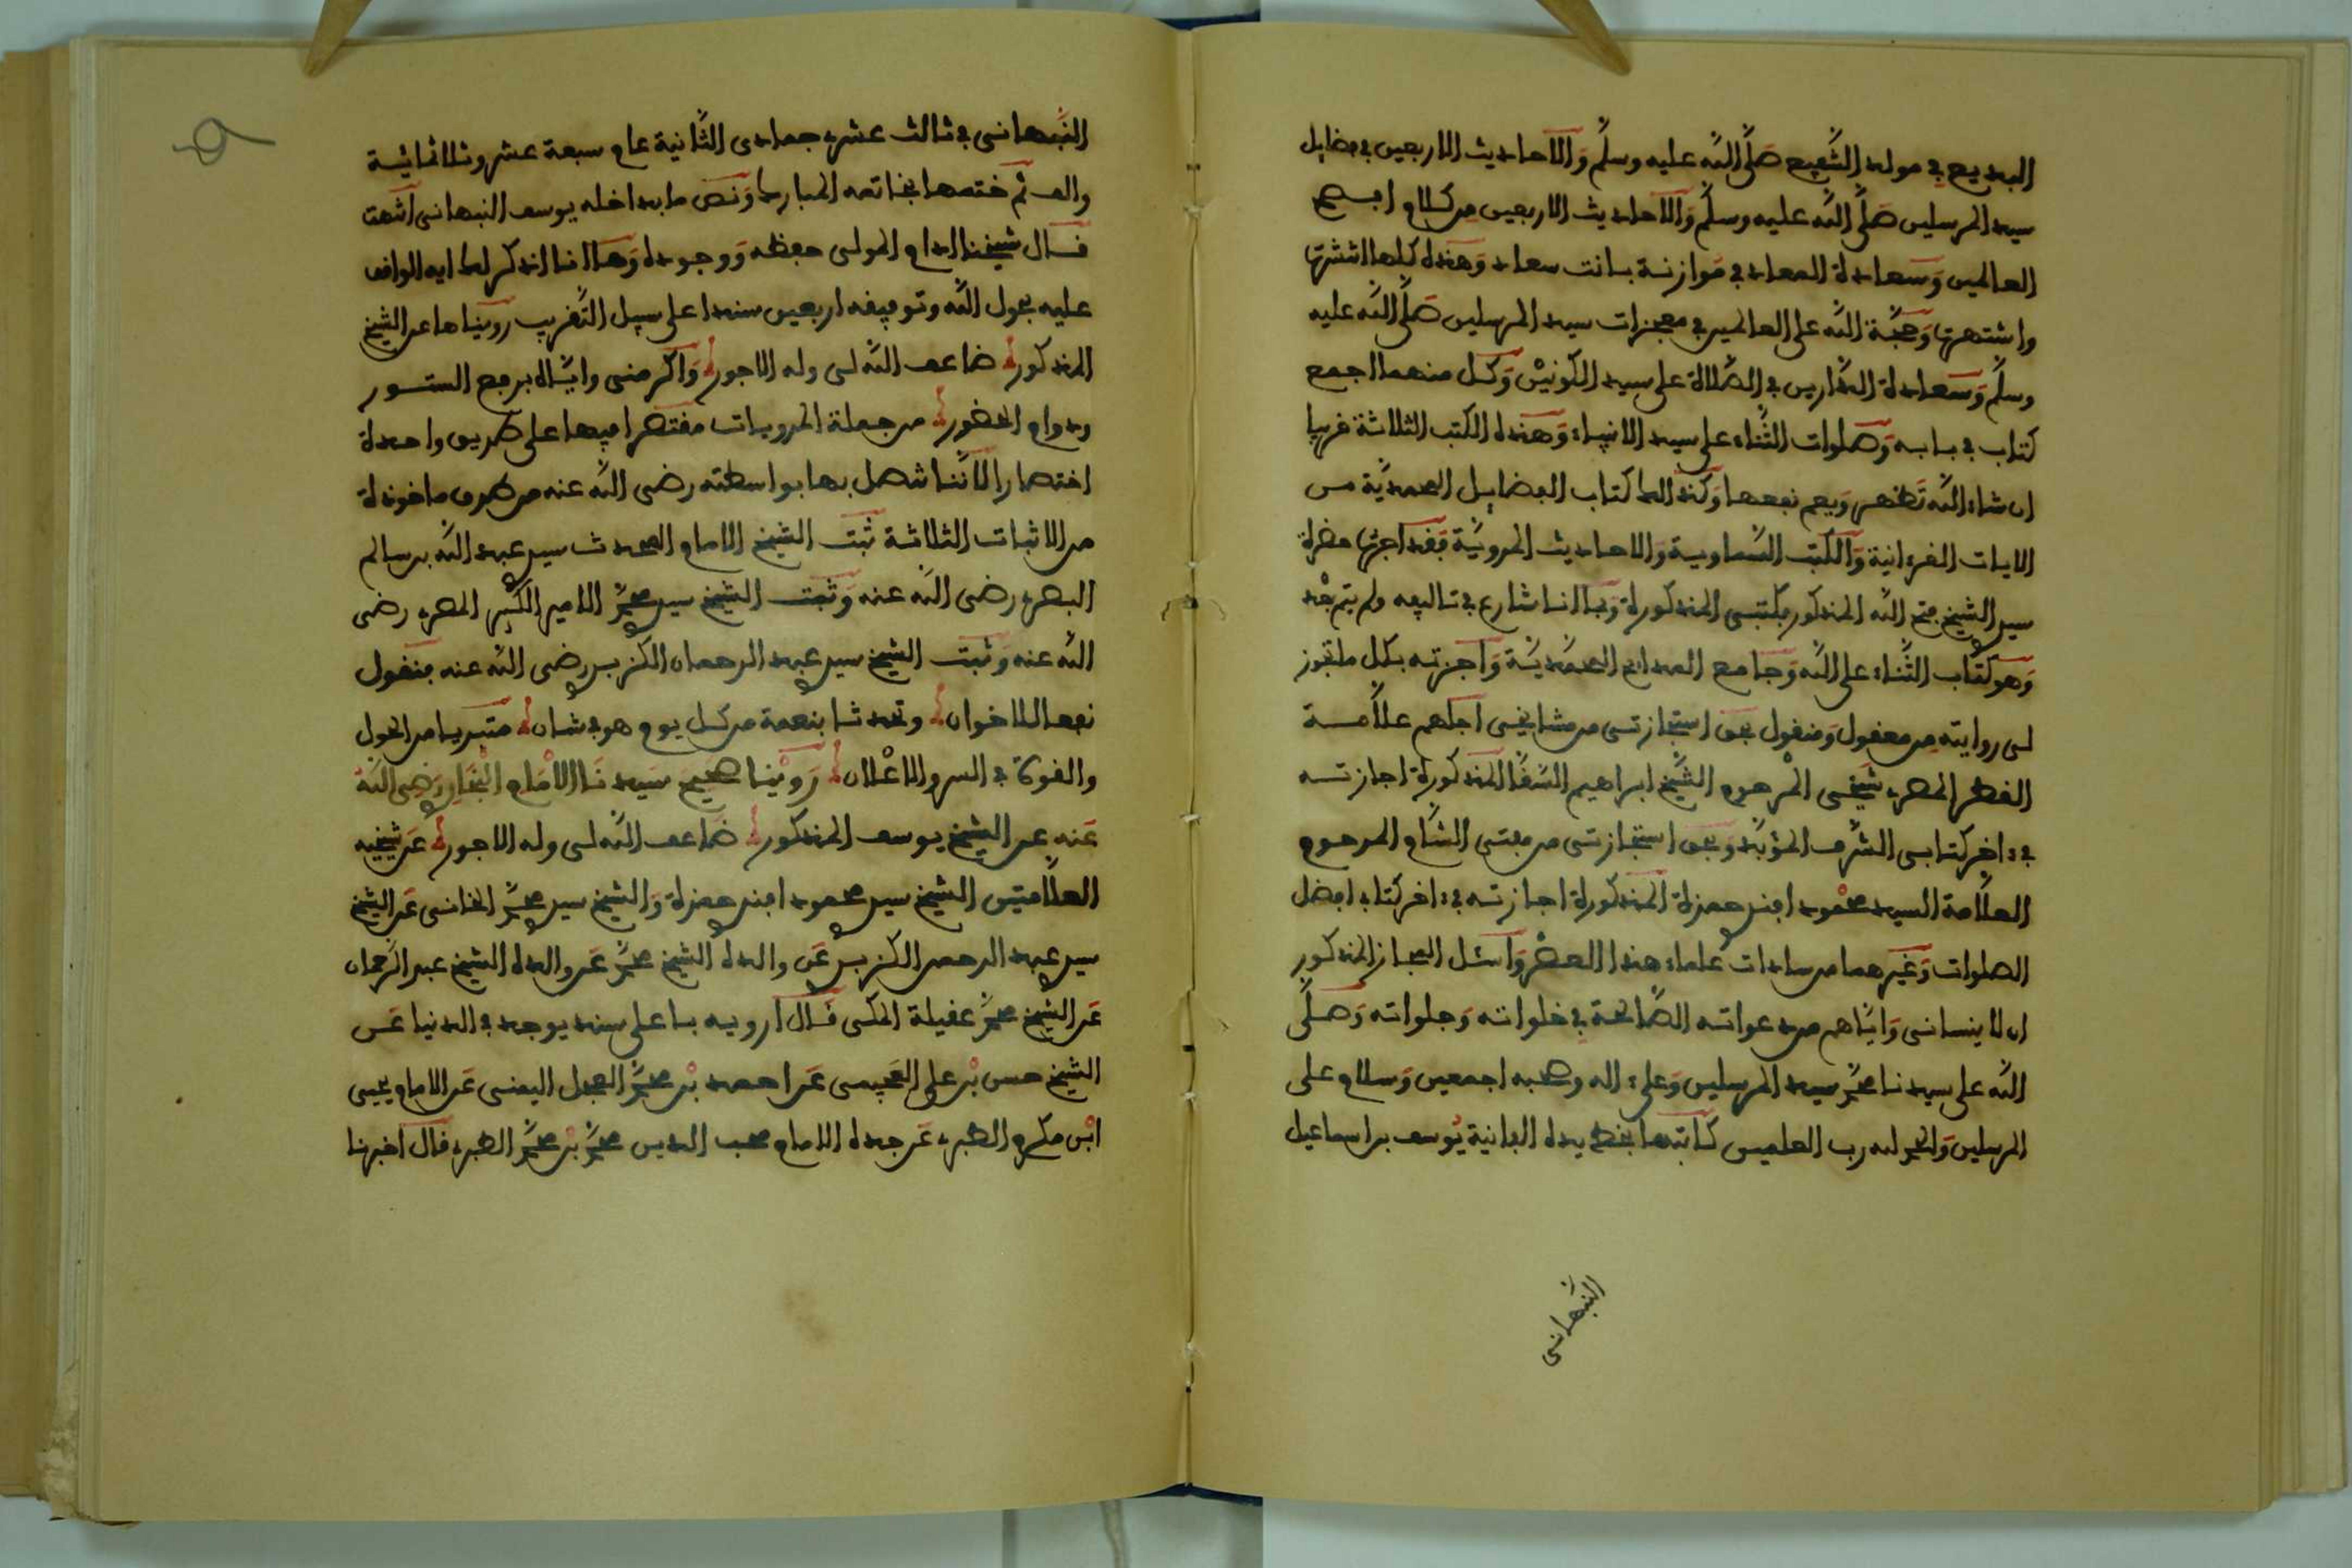 البديع في مولد الشفيع صلى الله عليه وسلم والاحاديث الاربعين في فضايل
سيد المرسلين صلى الله عليه وسلم والاحاديث الاربعين من كلام افصح
العالمين وسعادة المعاد في موازنة بانت سعاد وهذه كلها انتشرت
واشتهرت وحجة الله على العالمين في معجزات سيد المرسلين صلى الله عليه
وسلم وسعادة الدارين في الصلاة على سيد الكونين وكل منهما اجمع
كتاب في بابه وصلوات الثناء على سيد الانبياء وهذه الكتب الثلاثة قريبا
ان شاء الله تظهر ويعم نفعها وكذالك كتاب الفضايل المحمدية من
الايات القرءانية والكتب السماوية والاحاديث المروية فقد اجزت حضرة
سيدي الشيخ فتح الله المذكور بكتبي المذكورة وبما انا شارع في تاليفه ولم يتم بعد
وهو كتاب الثناء على الله وجامع المدايح المحمدية واجزته بكل ما تجوز
لي روايته من معقول ومنقول بحق استجازتي من مشايخي اجلهم علامة
القطر المصري شيخي المرحوم الشيخ ابراهيم السقا المذكورة اجازته
في ءاخر كتابي الشرف المؤبد وبحق استجازتي من مفتي الشام المرحوم
العلامة السيد محمود افندي حمزة المذكورة اجازته في ءاخر كتاب افضل
الصلوات وغيرهما من سادات علماء هذا العصر واسئل المجاز المذكور
ان لا ينساني واياهم من دعواته الصالحة في خلواته وجلواته وصلى
الله على سيدنا محمد سيد المرسلين وعلى ءاله وصحبه اجمعين وسلام على
المرسلين والحمد لله رب العلمين كاتبها بخط يده الفانية يوسف بن اسماعيل
النبهاني
النبهاني في ثالث عشري جمادى الثانية عام سبعة عشر وثلاثمائية
والف ثم ختمها بخاتمه المبارك ونص ما بداخله يوسف النبهاني
قال شيخنا ادام المولى حفظه ووجوده وها انا اذكر لك ايه الواقف
عليه بحول الله وتوفيقه اربعين سندا على سبيل التقريب رويناها عن الشيخ
المذكور ضاعف الله لي وله الاجور واكرمني واياه برفع الستور
ودوام الحضور من جملة المرويات مقتصرا فيها على طريق واحدة
اختصارا لاننا نتصل بها بواسطته رضي الله عنه من طرق ماخوذة
من الاثبات الثلاثة ثبت الشيخ الامام المحدث سيدي عبد الله بن سالم
البصري رضي الله عنه وثبت الشيخ سيدي محمد الامير الكبير المصري رضي
الله عنه وثبت الشيخ سيدي عبد الرحمان الكزبري رضي الله عنه فنقول
نفعا للاخوان وتحدثا بنعمة من كل يوم هو في شان متبريا من الحول
والقوة في السر والاعلان روينا صحيح سيدنا الامام البخاري رضي الله
عنه عن الشيخ يوسف المذكور ضاعف الله لي وله الاجور عن شيخيه
العلامتين الشيخ سيدي محمود افندي حمزة والشيخ سيدي محمد الخاني عن الشيخ
سيدي عبد الرحمن الكزبري عن والده الشيخ محمد عن والده الشيخ عبد الرحمان
عن الشيخ محمد عقيلة المكي قال ارويه باعلى سند يوجد في الدنيا عن
الشيخ حسن بن علي العجيمي عن احمد بن محمد العجل اليمني عن الامام يحيى
ابن مكرم الطبري عن جده الامام محب الدين محمد بن محمد الطبري قال اخبرنا